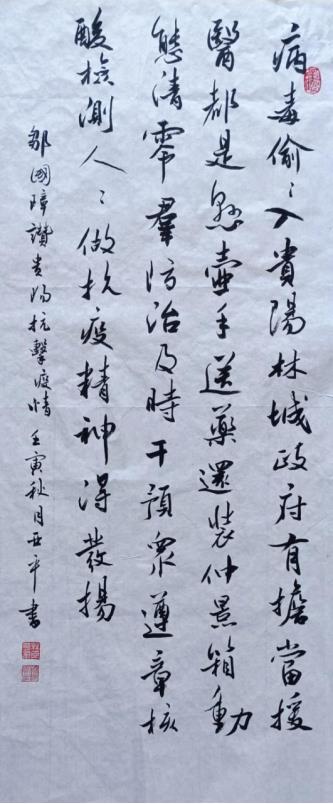 病毒偷〻入貴陽林城政府有擔當援
醫都是懸壺手送藥還裝仲景箱動
態清零羣防治及時干預衆遵章核
酸檢測人〻做抗疫精神得發揚
鄒國障讚貴陽抗擊疫情壬寅秋月亚平書